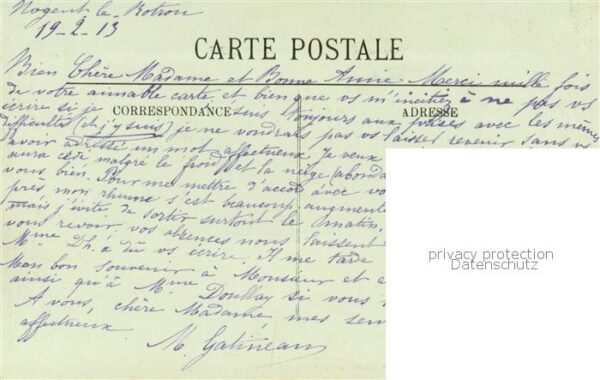 Nogent le Rotrou
19-2-13
CARTE POSTALE
Bien Chère Madame et Bonne Amie Merci mille fois
de votre aimable carte et bien que vs m'incitiez à ne pas vs
écrire si je suis toujours aux prises avec les mêmes
CORRESPONDANCE
ADRESSE
difficultés (et j'y suis) je ne voudrais pas vs laisser revenir sans vs
avoir adressé un mot affectueux Je veux
aura cédé malgré le froid et la neige (abonda
vous bien. Pour me mettre d'accord avec vo
près mon rhume s'est beaucoup augmenté
mais j'évite de sortir surtout le matin.
vous revoir, vos absences nous laissent
Mme Dh. a dû vs écrire. Il me tarde
Mon bon souvenir à Monsieur et a
ainsi qu'à Mme Doullay si vous
A vous, chère Madame, mes sen
affectueux
M. Gatineau
privacy protection
Datenschutz